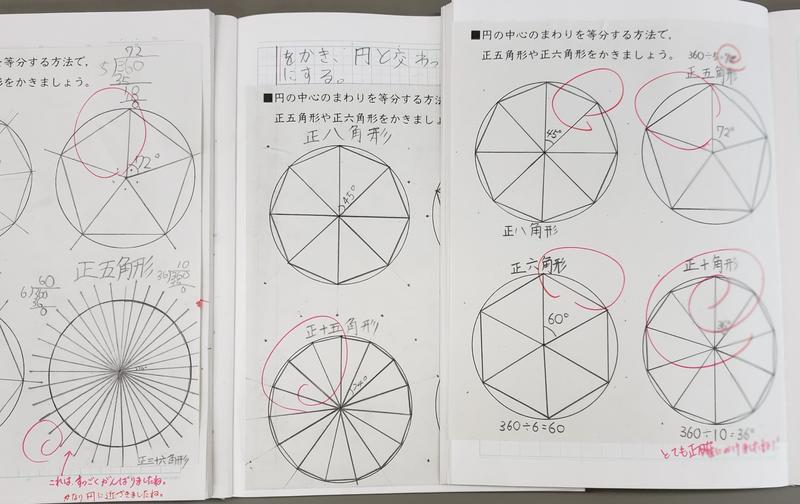 を等分する方法で、
形をかきましょう。
72
5)360
35
10
72°
正五角形
60
6)360
36
0
10
36)360
36
0
正三十六角形
これは、すっごくがんばりましたね。
かなり円に近づきましたね。
をかき、円と交わっ
にする。
■円の中心のまわりを等分する方法
正五角形や正六角形をかきましょ
正八角形
45°
正十五角形
24°
■円の中心のまわりを等分する方法で、
正五角形や正六角形をかきましょう。
360÷5=72
正五角形
45°
72°
正八角形
正六角形
正十角形
60°
36°
360÷6=60
360÷10=36°
とても正確に